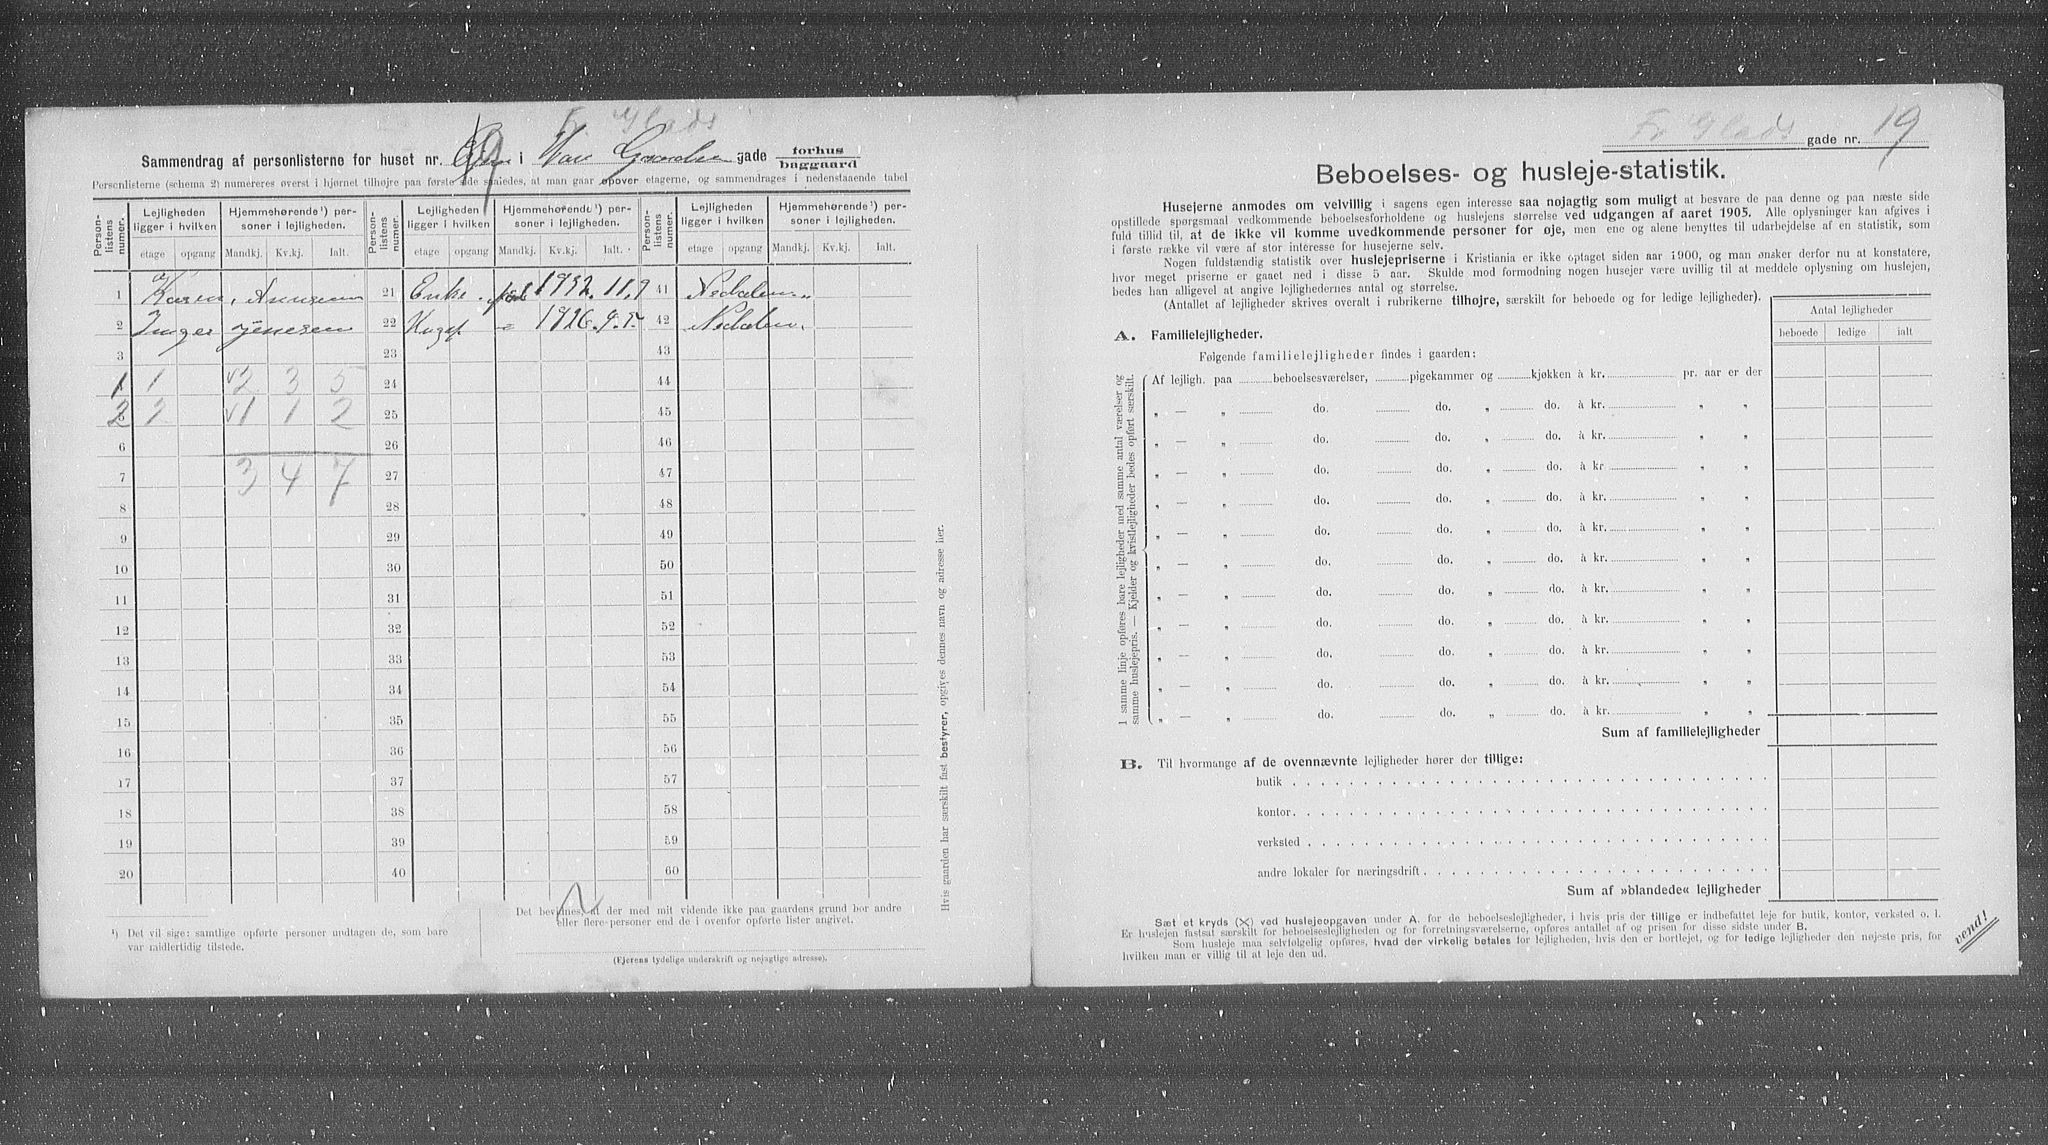 Fr. Glads
Sammendrag af personlisterne for huset nr. 19 i gade forhus baggaard
Personlisterne (schema 2) numereres øverst i hjørnet tilhøjre paa første side saaledes, at man gaar opover etagerne, og sammendrages i nedenstaaende tabel
Person-listens numer. Lejligheden ligger i hvilken Hjemmehørende¹) personer i lejligheden. Person-listens numer. Lejligheden ligger i hvilken Hjemmehørende¹) personer i lejligheden. Person-listens numer. Lejligheden ligger i hvilken Hjemmehørende¹) personer i lejligheden.
etage opgang Mandkj. Kv.kj. Ialt. etage opgang Mandkj. Kv.kj. Ialt. etage opgang Mandkj. Kv.kj. Ialt.
1 Karen 21 Enke. 41
2 Inger Jensen 22 42
3 23 43
1 1 2 3 5 24 44
2 2 1 1 2 25 45
6 26 46
7 3 4 7 27 47
8 28 48
9 29 49
10 30 50
11 31 51
12 32 52
13 33 53
14 34 54
15 35 55
16 36 56
17 37 57
18 38 58
19 39 59
20 40 60
¹) Det vil sige: samtlige opførte personer undtagen de, som bare
var midlertidig tilstede.
Det bevidnes, at der med mit vidende ikke paa gaardens grund bor andre
eller flere personer end de i ovenfor opførte lister angivet.
(Ejerens tydelige underskrift og nøjagtige adresse).
Hvis gaarden har særskilt fast bestyrer, opgives dennes navn og adresse her.
Fr Glads gade nr. 19
Beboelses- og husleje-statistik.
Husejerne anmodes om velvillig i sagens egen interesse saa nøjagtig som muligt at besvare de paa denne og paa næste side
opstillede spørgsmaal vedkommende beboelsesforholdene og huslejens størrelse ved udgangen af aaret 1905. Alle oplysninger kan afgives i
fuld tillid til, at de ikke vil komme uvedkommende personer for øje, men ene og alene benyttes til udarbejdelse af en statistik, som
i første række vil være af stor interesse for husejerne selv.
Nogen fuldstændig statistik over huslejepriserne i Kristiania er ikke optaget siden aar 1900, og man ønsker derfor nu at konstatere,
hvor meget priserne er gaaet ned i disse 5 aar. Skulde mod formodning nogen husejer være uvillig til at meddele oplysning om huslejen,
bedes han alligevel at angive lejlighedernes antal og størrelse.
(Antallet af lejligheder skrives overalt i rubrikerne tilhøjre, særskilt for beboede og for ledige lejligheder).
Antal lejligheder
beboede ledige ialt
A. Familielejligheder.
Følgende familielejligheder findes i gaarden:
Af lejligh. paa beboelsesværelser, pigekammer og kjøkken à kr. pr. aar er der
„ — „ do. do. „ do. à kr. „ „
„ — „ do. do. „ do. à kr. „ „
„ — „ do. do. „ do. à kr „ „
„ — „ do. do. „ do. à kr. „ „
„ — „ do. do. „ do. à kr. „ „
„ — „ do. do. „ do. à kr. „ „
„ — „ do. do. „ do. à kr. „ „
„ — „ do. do. „ do. à kr. „ „
„ — „ do. do. „ do. à kr. „ „
„ — „ do. do. „ do. à kr. „ „
„ — „ do. do. „ do. à kr. „ „
I samme linje opføres bare lejligheder med samme antal værelser og
samme huslejepris. — Kjelder og kvistlejligheder bedes opført særskilt.
Sum af familielejligheder
B. Til hvormange af de ovennævnte lejligheder hører der tillige:
butik
kontor
verksted
andre lokaler for næringsdrift
Sum af »blandede« lejligheder
Sæt et kryds (X) ved huslejeopgaven under A. for de beboelseslejligheder, i hvis pris der tillige er indbefattet leje for butik, kontor, verksted o. l.
Er huslejen fastsat særskilt for beboelseslejligheden og for forretningsværelserne, opføres antallet af og prisen for disse sidste under B.
Som husleje maa selvfølgelig opføres, hvad der virkelig betales for lejligheden, hvis den er bortlejet, og for ledige lejligheder den nøjeste pris, for
hvilken man er villig til at leje den ud.
vend!